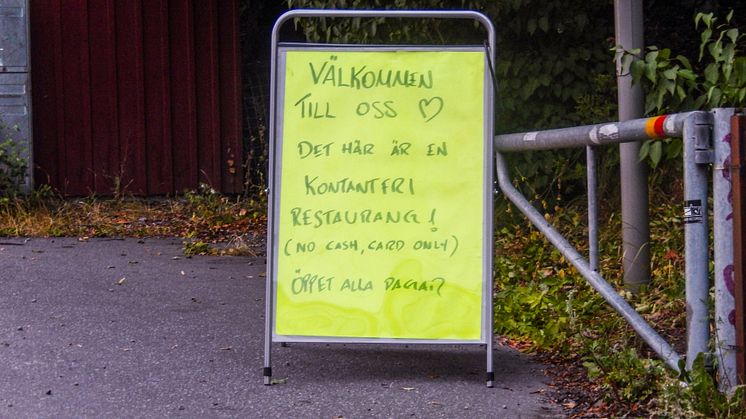 VÄLKOMMEN
TILL OSS ♡
DET HÄR ÄR EN
KONTANTFRI
RESTAURANG!
(NO CASH, CARD ONLY)
ÖPPET ALLA DAGAR